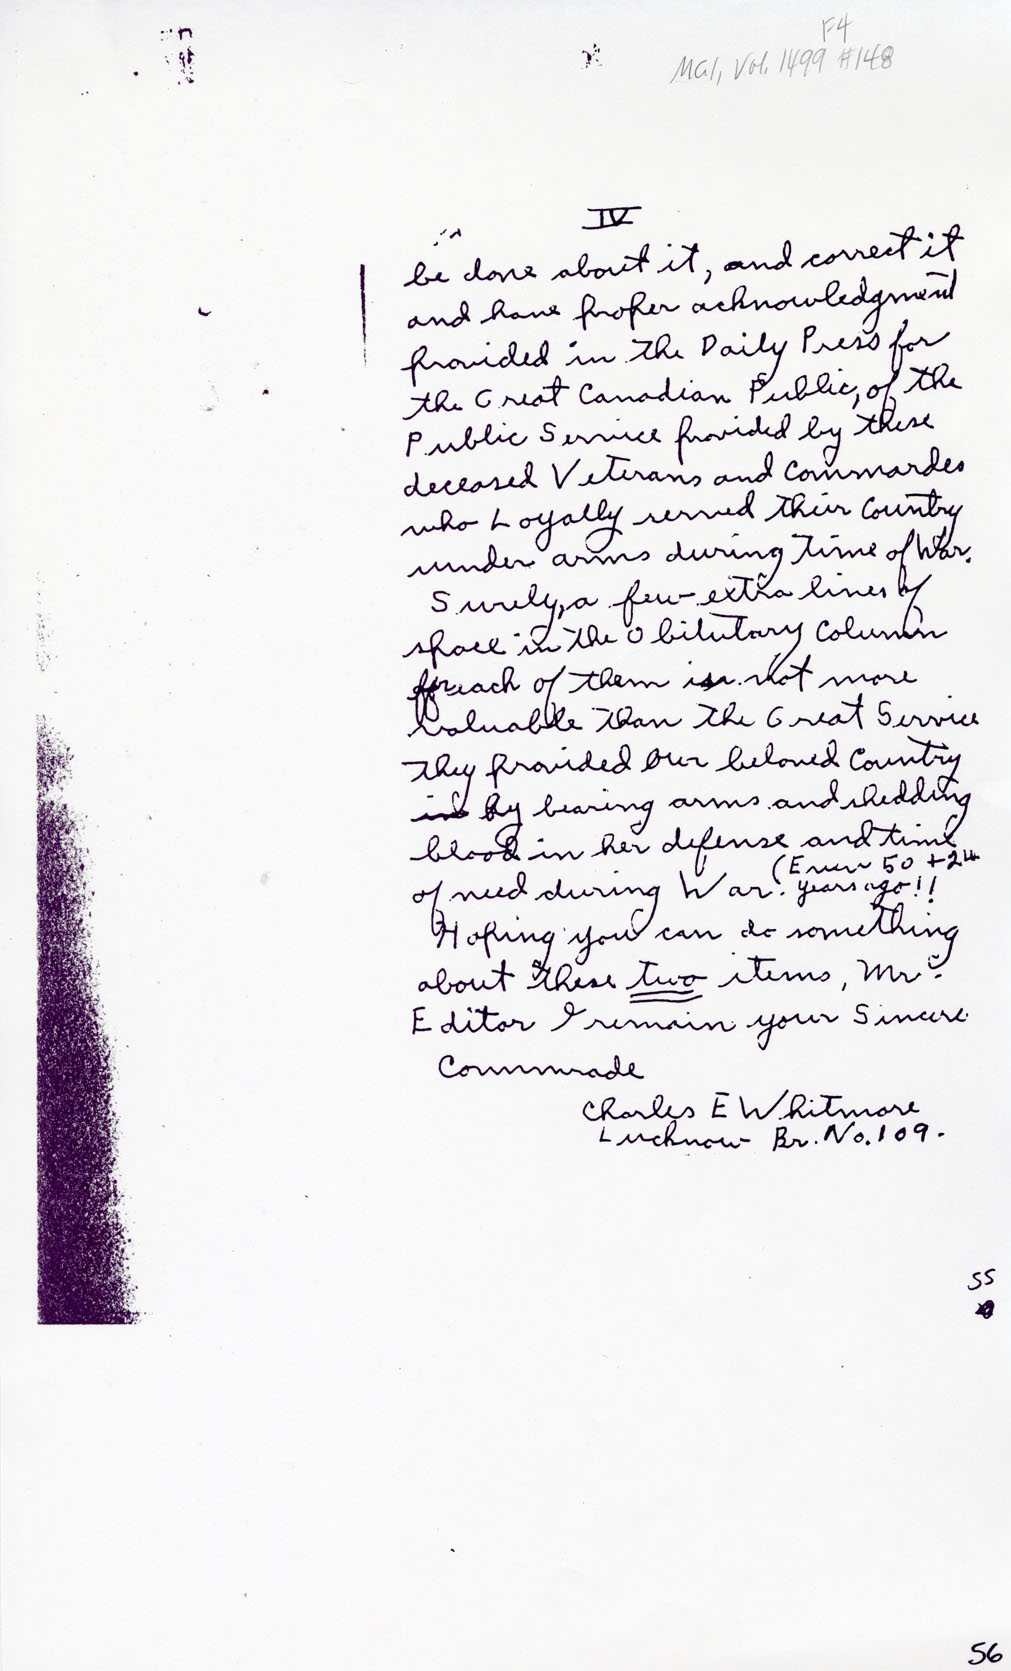 F4
MG1, Vol. 1499 #148
IV
be done about it, and correct it
and have proper acknowledgment
provided in the Daily Press for
the Great Canadian Public, of the
Public Service provided by these
deceased Veterans and Commardes
who Loyally served their Country
under arms during Time of War.
Surely, a few extra lines of
space in the Obitutary Column
for each of them is not more
valuable than the Great Service
they provided Our beloved Country
in by bearing arms and shedding
blood in her defense and time
of need during War. (Even 50 + 24
years ago!!
Hoping you can do something
about these two items, Mr.
Editor I remain your Sincere
Commrade
Charles E Whitmore
Lucknow Br. No. 109.
55
56